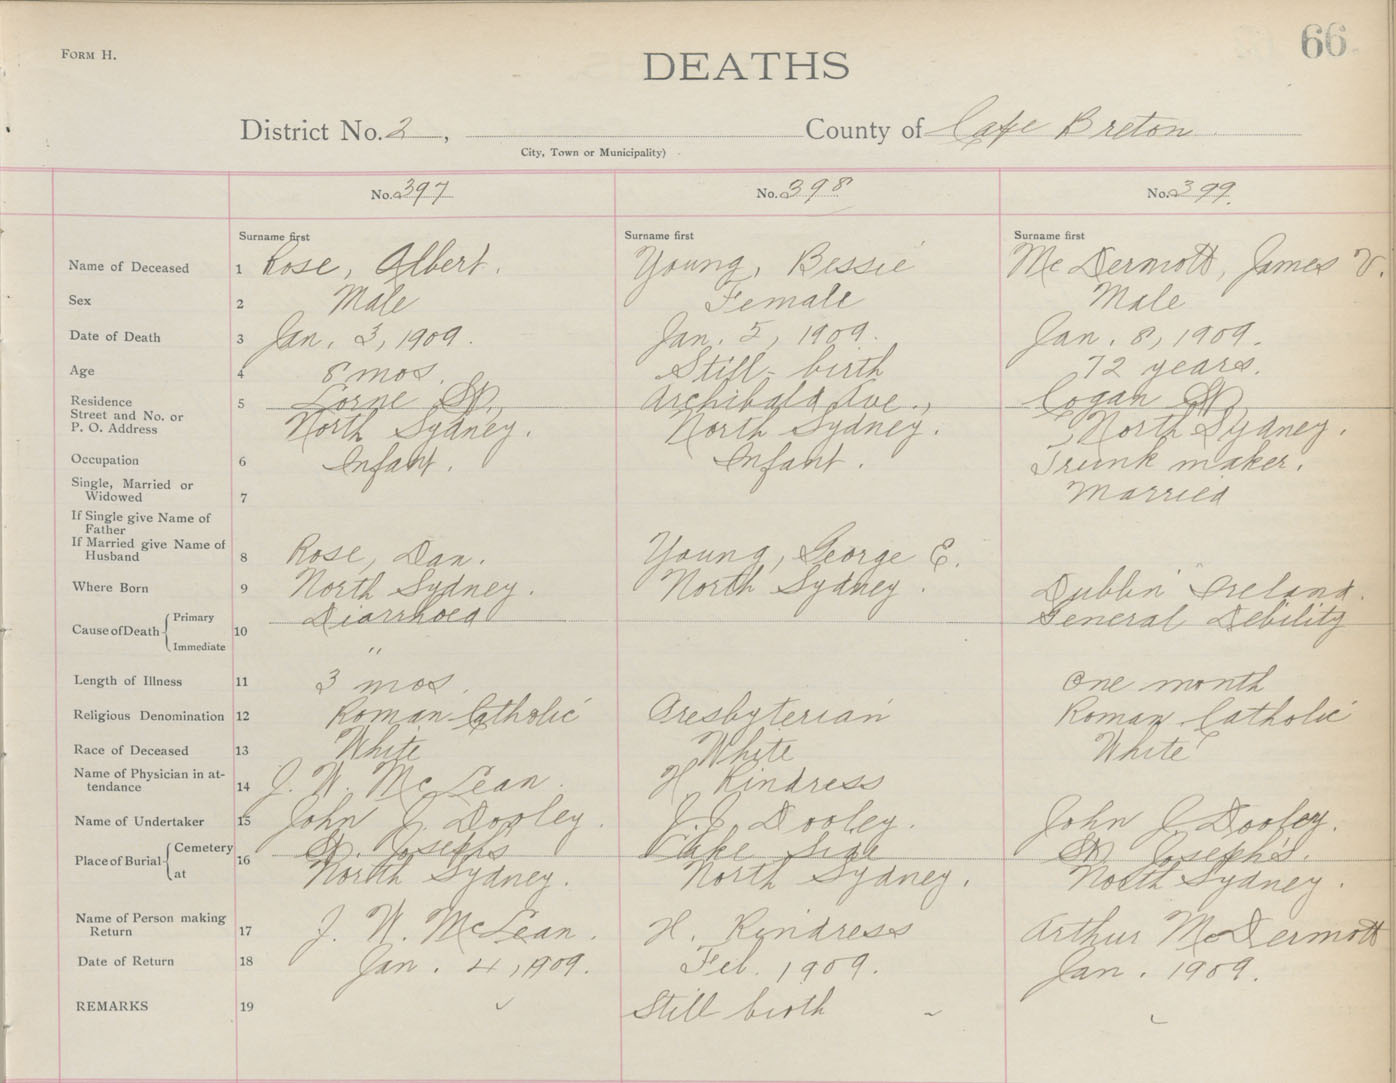 FORM H.
66
DEATHS
District No. 2, County of Cape Breton
City, Town or Municipality)
No. 397 No. 398 No. 399
Surname first Surname first Surname first
Name of Deceased 1 Rose, Albert. Young, Bessie McDermott, James V.
Sex 2 Male Female Male
Date of Death 3 Jan. 3, 1909. Jan. 5, 1909. Jan. 8, 1909.
Age 4 8 mos. Still-birth 72 years.
Residence 5 Lorne St., Archibald Ave., Cogan St,
Street and No. or
P. O. Address North Sydney. North Sydney. North Sydney.
Occupation 6 Infant. Infant. Trunk maker.
Single, Married or
Widowed 7 Married
If Single give Name of
Father
If Married give Name of
Husband 8 Rose, Dan. Young, George E.
Where Born 9 North Sydney. North Sydney. Dublin Ireland.
Cause of Death Primary 10 Diarrhoea General Debility
Immediate "
Length of Illness 11 3 mos. One month
Religious Denomination 12 Roman Catholic Presbyterian Roman Catholic
Race of Deceased 13 White White White
Name of Physician in at-
tendance 14 J. W. McLean. H Rindress
Name of Undertaker 15 John J. Dooley. J. J. Dooley. John J Dooley.
Place of Burial Cemetery 16 St. Josephs Lake Side St Joseph's.
at North Sydney. North Sydney. North Sydney.
Name of Person making
Return 17 J. W. McLean. H. Rindress Arthur McDermott
Date of Return 18 Jan. 4, 1909. Feb. 1909. Jan. 1909.
REMARKS 19 Still birth